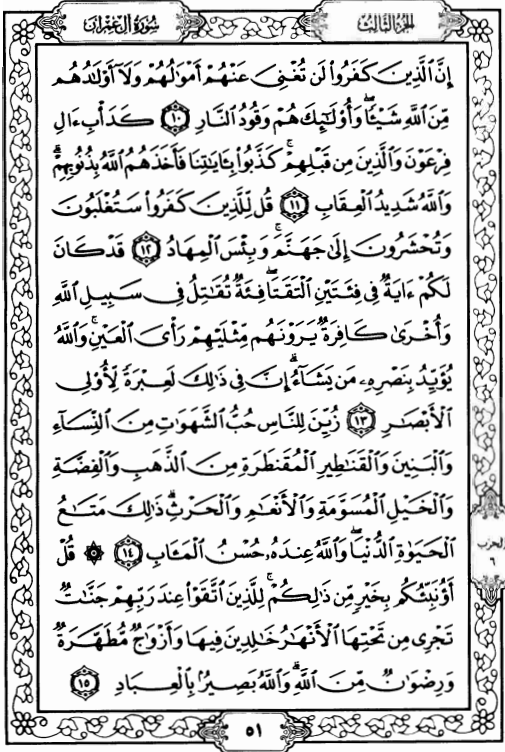 سُورَةُ آلِ عِمْرَانَ
الجُزْءُ الثَّالِثُ
إِنَّ ٱلَّذِينَ كَفَرُواْ لَن تُغْنِىَ عَنْهُمْ أَمْوَٰلُهُمْ وَلَآ أَوْلَٰدُهُم
مِّنَ ٱللَّهِ شَيْـًٔا ۖ وَأُوْلَٰٓئِكَ هُمْ وَقُودُ ٱلنَّارِ ١٠ كَدَأْبِ ءَالِ
فِرْعَوْنَ وَٱلَّذِينَ مِن قَبْلِهِمْ ۚ كَذَّبُواْ بِـَٔايَٰتِنَا فَأَخَذَهُمُ ٱللَّهُ بِذُنُوبِهِمْ ۗ
وَٱللَّهُ شَدِيدُ ٱلْعِقَابِ ١١ قُل لِّلَّذِينَ كَفَرُواْ سَتُغْلَبُونَ
وَتُحْشَرُونَ إِلَىٰ جَهَنَّمَ ۚ وَبِئْسَ ٱلْمِهَادُ ١٢ قَدْ كَانَ
لَكُمْ ءَايَةٌ فِى فِئَتَيْنِ ٱلْتَقَتَا ۖ فِئَةٌ تُقَٰتِلُ فِى سَبِيلِ ٱللَّهِ
وَأُخْرَىٰ كَافِرَةٌ يَرَوْنَهُم مِّثْلَيْهِمْ رَأْىَ ٱلْعَيْنِ ۚ وَٱللَّهُ
يُؤَيِّدُ بِنَصْرِهِۦ مَن يَشَآءُ ۗ إِنَّ فِى ذَٰلِكَ لَعِبْرَةً لِّأُوْلِى
ٱلْأَبْصَٰرِ ١٣ زُيِّنَ لِلنَّاسِ حُبُّ ٱلشَّهَوَٰتِ مِنَ ٱلنِّسَآءِ
وَٱلْبَنِينَ وَٱلْقَنَٰطِيرِ ٱلْمُقَنطَرَةِ مِنَ ٱلذَّهَبِ وَٱلْفِضَّةِ
وَٱلْخَيْلِ ٱلْمُسَوَّمَةِ وَٱلْأَنْعَٰمِ وَٱلْحَرْثِ ۗ ذَٰلِكَ مَتَٰعُ
ٱلْحَيَوٰةِ ٱلدُّنْيَا ۖ وَٱللَّهُ عِندَهُۥ حُسْنُ ٱلْمَـَٔابِ ١٤ ۞ قُلْ
أَؤُنَبِّئُكُم بِخَيْرٍ مِّن ذَٰلِكُمْ ۚ لِلَّذِينَ ٱتَّقَوْاْ عِندَ رَبِّهِمْ جَنَّٰتٌ
تَجْرِى مِن تَحْتِهَا ٱلْأَنْهَٰرُ خَٰلِدِينَ فِيهَا وَأَزْوَٰجٌ مُّطَهَّرَةٌ
وَرِضْوَٰنٌ مِّنَ ٱللَّهِ ۗ وَٱللَّهُ بَصِيرٌۢ بِٱلْعِبَادِ ١٥
الحزب
٦
٥١